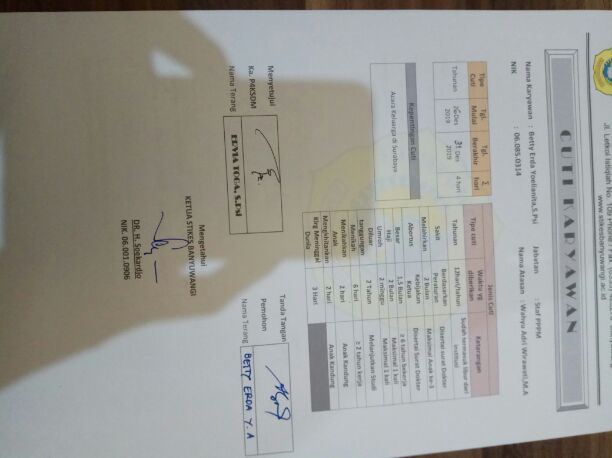 Jl. Letkol Istiqlah No. 109
www.stikesbanyuwangi.ac.id
CUTI KARYAWAN
Nama Karyawan : Betty Erda Yoelianita,S.Psi
NIK : 06.085.0314
Jabatan : Staf PPPM
Nama Atasan : Wahyu Adri Wirawati,M.A
Tipe Cuti Tgl. Mulai Tgl. Berakhir Σ hari
Tahunan 26 Des 2019 31 Des 2019 4 hari
Kepentingan Cuti
Acara Keluarga di Surabaya
Jenis Cuti
Tipe cuti Waktu yg diberikan Keterangan
Tahunan 12hari/tahun Sudah termasuk libur dari institusi
Sakit Berdasarkan Peraturan Disertai surat Dokter
Melahirkan 2 Bulan Maksimal Anak ke-3
Abortus Kebijakan Ketua Disertai Surat Dokter
Besar 1,5 Bulan ≥ 6 tahun bekerja
Haji 2 Bulan Maksimal 1 kali
Umroh 2 minggu Maksimal 1 kali
Diluar tanggungan 2 Tahun Melanjutkan Studi
Menikah 6 hari ≥ 2 tahun kerja
Menikahkan Anak 2 hari Anak Kandung
Mengkhitankan 2 hari Anak Kandung
Klrg Meninggal Dunia 3 Hari
Menyetujui
Ka. P4KSDM
Nama Terang
S.Psi
Tanda Tangan
Pemohon
Nama Terang
BETTY ERDA Y. A
Mengetahui
KETUA STIKES BANYUWANGI
DR. H. Soekardjo
NIK. 06.001.0906